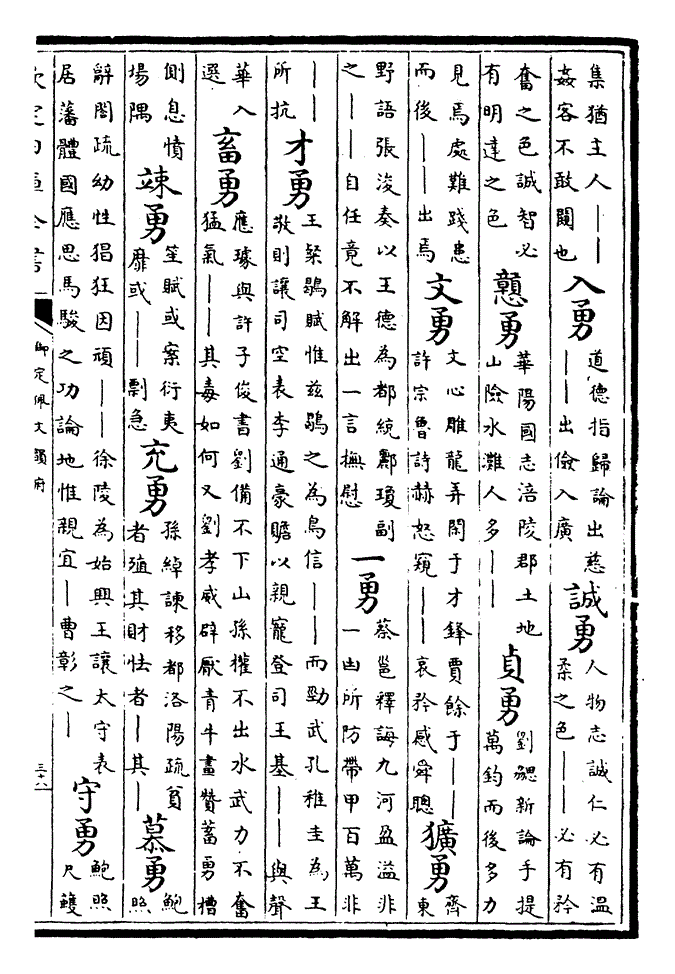 集猶主人｜｜
姦客不敢闘也
入勇
道德指歸論出慈
｜｜出儉入廣
誠勇
人物志誠仁必有溫
柔之色｜｜必有矜
奮之色誠智必
有明達之色
戇勇
華陽國志涪陵郡土地
山險水灘人多｜｜
貞勇
劉勰新論手提
萬鈞而後多力
見焉處難踐患
而後｜｜出焉
文勇
文心雕龍弄閑于才鋒賈餘于｜｜
許宗魯詩赫怒窺｜｜哀矜感舜聰
獷勇
齊
東
野語張浚奏以王德為都統酈瓊副
之｜｜自任竟不解出一言撫慰
一勇
蔡邕釋誨九河盈溢非
一凷所防帶甲百萬非
｜｜
所抗
才勇
王粲鶡賦惟兹鶡之為鳥信｜｜而勁武孔稚圭為王
敬則讓司空表李通豪贍以親寵登司王基｜｜與聲
華入
選
畜勇
應璩與許子俊書劉備不下山孫權不出水武力不奮
猛氣｜｜其毒如何又劉孝威辟厭青牛畫贊蓄勇槽
側息憤
場隅
竦勇
笙賦或案衍夷
靡或｜｜剽急
充勇
孫綽諫移都洛陽疏貧
者殖其財怯者｜其｜
慕勇
鮑
照
辭閤疏幼性猖狂因頑｜｜徐陵為始興王讓太守表
居藩體國應思馬駿之功論地惟親宜｜曹彰之｜
守勇
鮑照
尺蠖
欽定四庫全書
御定佩文韻府
三十八